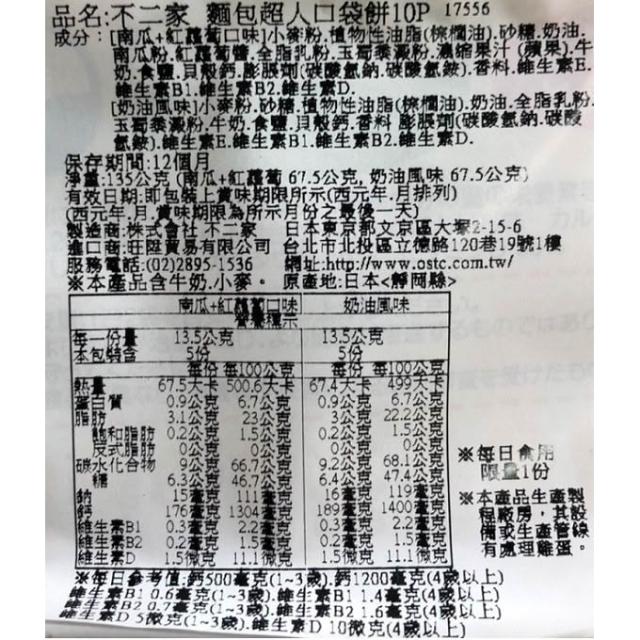 品名:不二家 麵包超人口袋餅10P 17556
成分：[南瓜+紅蘿蔔口味]小麥粉.植物性油脂(棕櫚油).砂糖.奶油.
南瓜粉.紅蘿蔔醬.全脂乳粉.玉蜀黍澱粉.濃縮果汁(蘋果).牛
奶.食鹽.貝殼鈣.膨脹劑(碳酸氫鈉.碳酸氫銨).香料.維生素E.
維生素B1.維生素B2.維生素D.
[奶油風味]小麥粉.砂糖.植物性油脂(棕櫚油).奶油.全脂乳粉.
玉蜀黍澱粉.牛奶.食鹽.貝殼鈣.香料 膨脹劑(碳酸氫鈉.碳酸
氫銨).維生素E.維生素B1.維生素B2.維生素D.
保存期間:12個月
淨重:135公克(南瓜+紅蘿蔔 67.5公克, 奶油風味 67.5公克)
有效日期:即包裝上賞味期限所示(西元年.月排列)
(西元年.月.賞味期限為所示月份之最後一天)
製造商:株式會社 不二家 日本東京都文京區大塚2-15-6
進口商:旺陞貿易有限公司 台北市北投區立德路120巷19號1樓
服務電話:(02)2895-1536 網址:http://www.ostc.com.tw/
※本產品含牛奶.小麥。 原產地:日本<靜岡縣>
南瓜+紅蘿蔔口味 奶油風味
營養標示
每一份量 13.5公克 13.5公克
本包裝含 5份 5份
每份 每100公克 每份 每100公克
熱量 67.5大卡 500.6大卡 67.4大卡 499大卡
蛋白質 0.9公克 6.7公克 0.9公克 6.7公克
脂肪 3.1公克 23公克 3公克 22.2公克
飽和脂肪 0.2公克 1.5公克 0.2公克 1.5公克
反式脂肪 0公克 0公克 0公克 0公克
碳水化合物 9公克 66.7公克 9.2公克 68.1公克
糖 6.3公克 46.7公克 6.4公克 47.4公克
鈉 15毫克 111毫克 16毫克 119毫克
鈣 176毫克 1304毫克 189毫克 1400毫克
維生素B1 0.3毫克 2.2毫克 0.3毫克 2.2毫克
維生素B2 0.2毫克 1.5毫克 0.2毫克 1.5毫克
維生素D 1.5微克 11.1微克 1.5微克 11.1微克
※每日食用
限量1份
※本產品生產製
程廠房，其設
備或生產管線
有處理雞蛋。
※每日參考值:鈣500毫克(1~3歲).鈣1200毫克(4歲以上)
維生素B1 0.6毫克(1~3歲).維生素B1 1.4毫克(4歲以上)
維生素B2 0.7毫克(1~3歲).維生素B2 1.6毫克(4歲以上)
維生素D 5微克(1~3歲).維生素D 10微克(4歲以上)